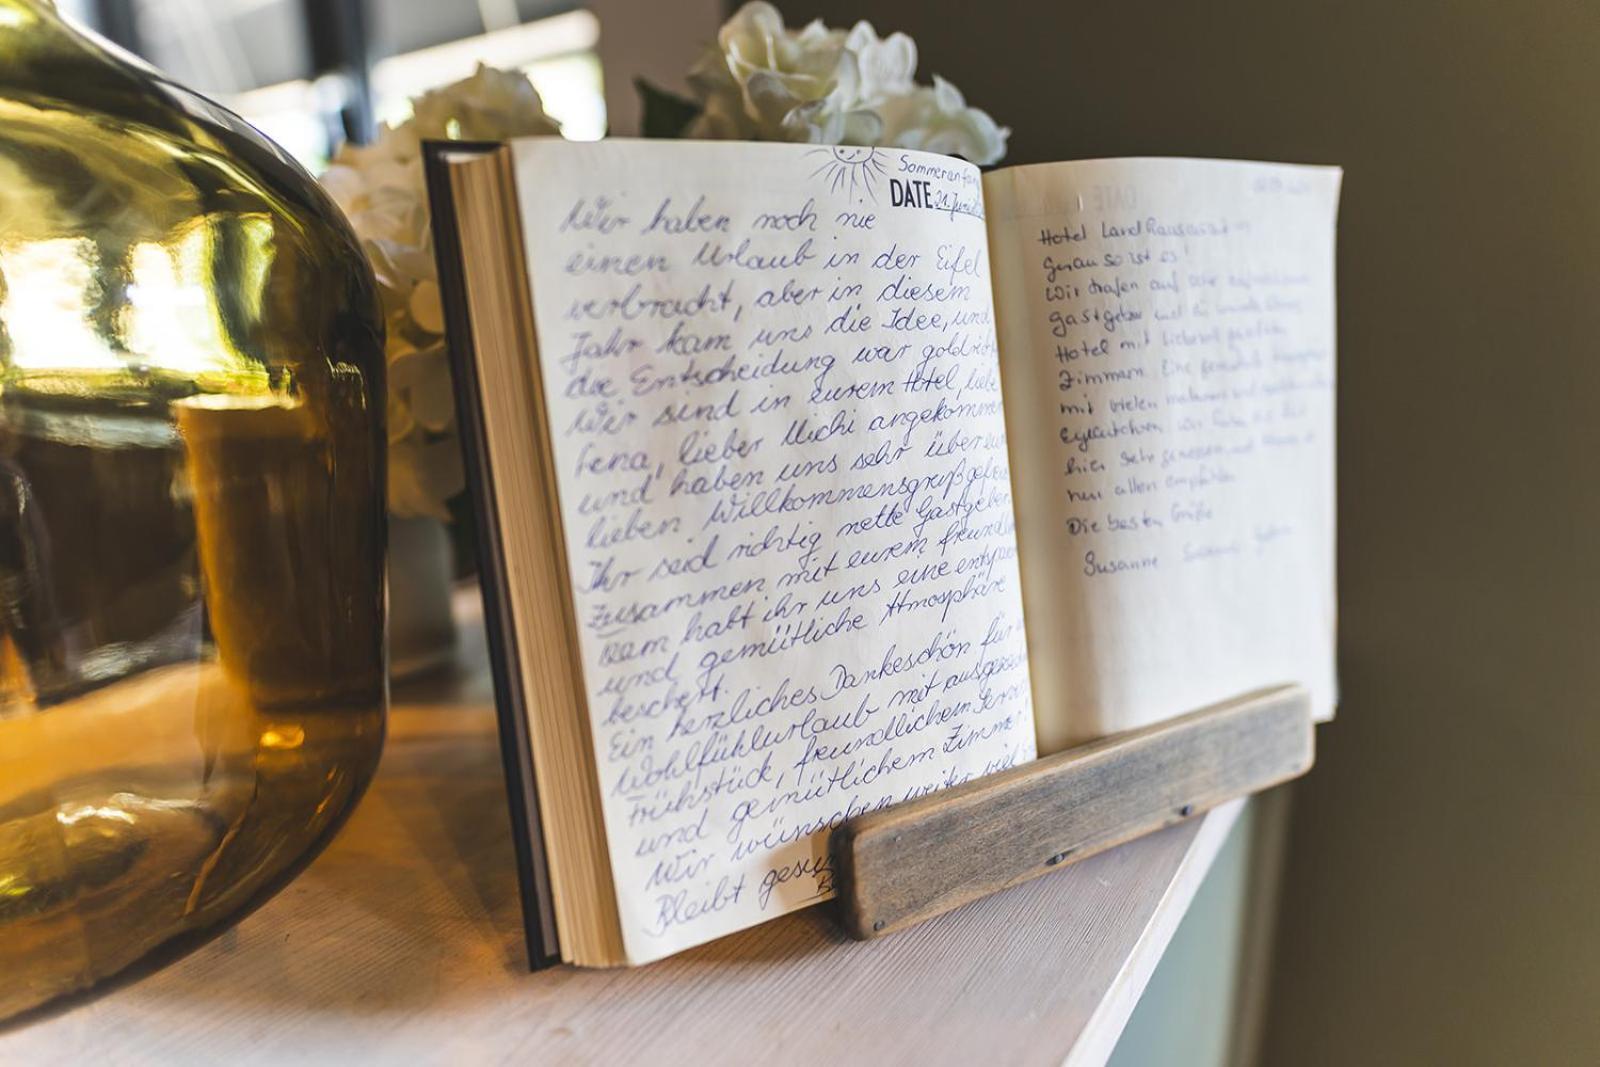 Sommeranfang
DATE 21. Juni
Wir haben noch nie
einen Urlaub in der Eifel
verbracht, aber in diesem
Jahr kam uns die Idee, und
die Entscheidung war goldrich
Wir sind in eurem Hotel, liebe
Lena, lieber Michi angekommen
und haben uns sehr über euren
lieben Willkommensgruß gefreut
Ihr seid richtig nette Gastgeber
Zusammen mit eurem freundl
Team habt ihr uns eine entspan
und gemütliche Atmosphäre
beschert.
Ein herzliches Dankeschön für
Wohlfühlurlaub mit ausgezeich
Frühstück, freundlichem Servi
und gemütlichem Zimmer!
Wir wünschen weiter viel
Bleibt gesu
DATE
Hotel
genau so ist es!
Wir trafen auf sehr
Gastgeber und
Hotel mit liebevoll
Zimmern. Eine
mit vielen
wir haben
hier sehr genossen und
nur allen empfehlen
Die besten Grüße
Susanne